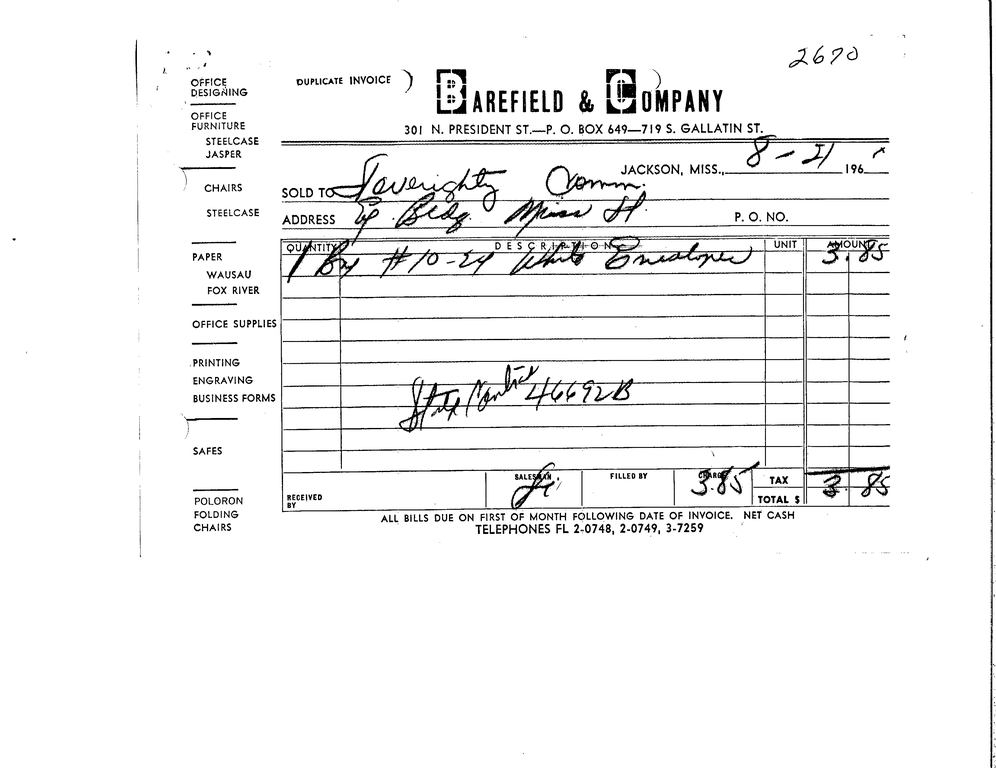 2670
OFFICE DESIGNING
OFFICE FURNITURE
STEELCASE
JASPER
CHAIRS
STEELCASE
PAPER
WAUSAU
FOX RIVER
OFFICE SUPPLIES
PRINTING
ENGRAVING
BUSINESS FORMS
SAFES
POLORON
FOLDING
CHAIRS
DUPLICATE INVOICE
BAREFIELD & COMPANY
301 N. PRESIDENT ST.—P. O. BOX 649—719 S. GALLATIN ST.
JACKSON, MISS., 8-21 196
SOLD TO Soverighty Comm.
ADDRESS Bldg. Miss St. P. O. NO.
QUANTITY DESCRIPTION UNIT AMOUNT
1 Bx #10-24 White Envelopes 3.85
State Contract 46692B
RECEIVED BY SALESMAN FILLED BY CHARGE 3.85 TAX
TOTAL $ 3.85
ALL BILLS DUE ON FIRST OF MONTH FOLLOWING DATE OF INVOICE. NET CASH
TELEPHONES FL 2-0748, 2-0749, 3-7259